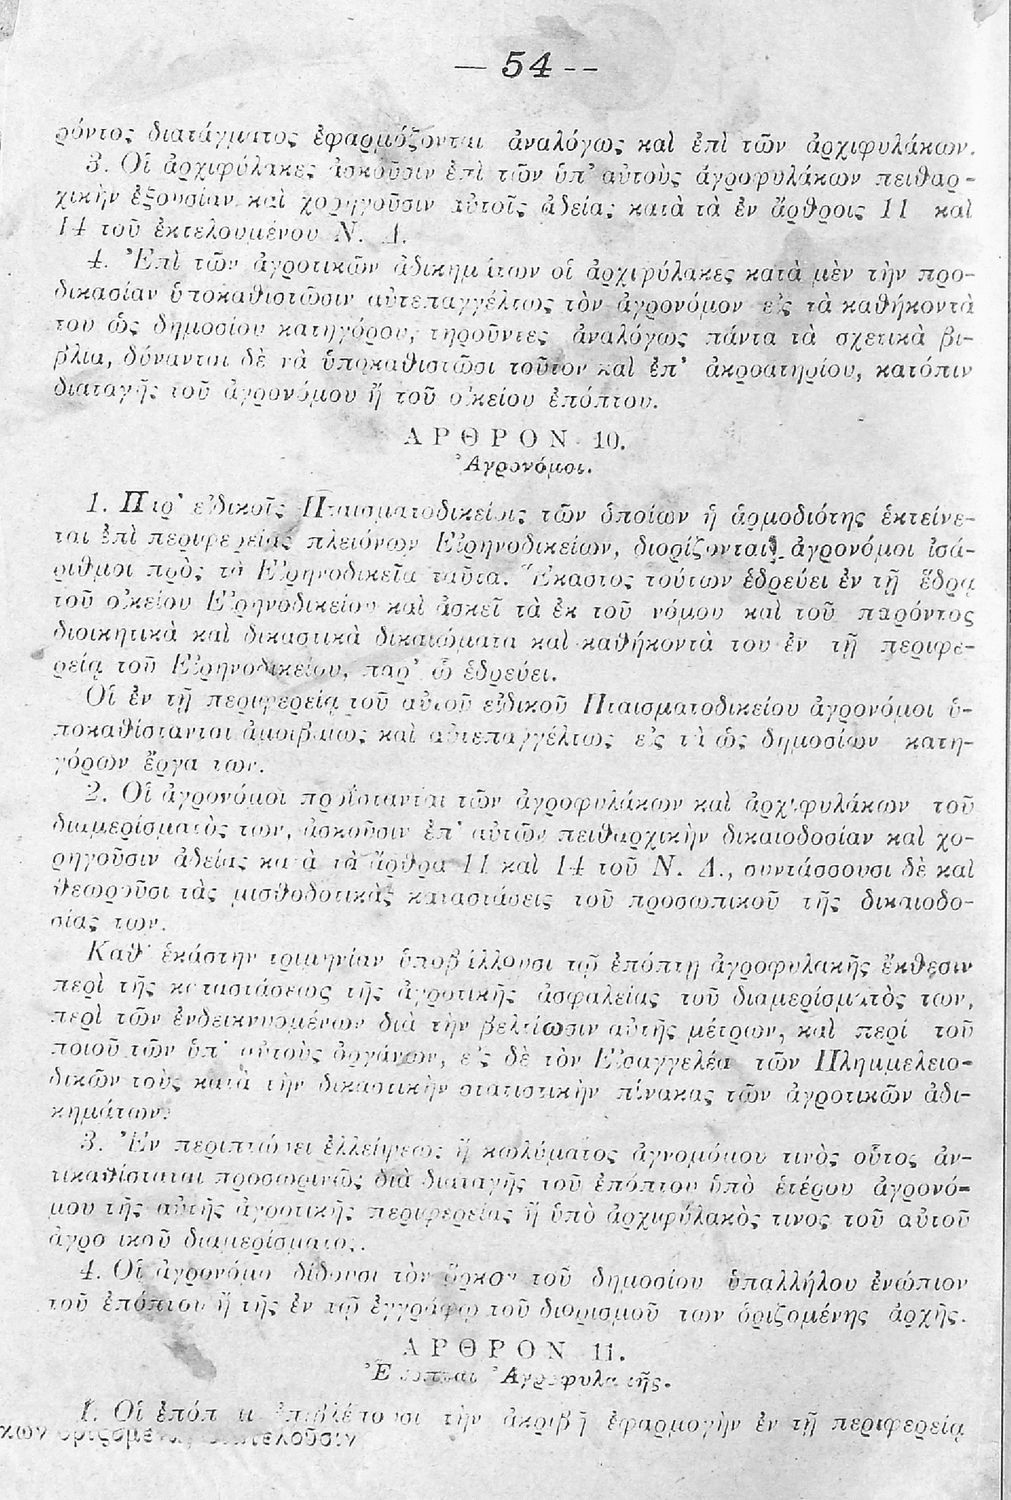 — 54 --
ρόντος διατάγματος ἐφαρμόζονται ἀναλόγως καὶ ἐπὶ τῶν ἀρχιφυλάκων.
3. Οἱ ἀρχιφύλακες ἀσκοῦσιν ἐπὶ τῶν ὑπ' αὐτοὺς ἀγροφυλάκων πειθαρ-
χικὴν ἐξουσίαν καὶ χορηγοῦσιν αὐτοῖς ἀδείας κατὰ τὰ ἐν ἄρθροις 11 καὶ
14 τοῦ ἐκτελουμένου Ν. Δ.
4. Ἐπὶ τῶν ἀγροτικῶν ἀδικημάτων οἱ ἀρχιφύλακες κατὰ μὲν τὴν προ-
δικασίαν ὑποκαθιστῶσιν αὐτεπαγγέλτως τὸν ἀγρονόμον εἰς τὰ καθήκοντά
του ὡς δημοσίου κατηγόρου, τηροῦντες ἀναλόγως πάντα τὰ σχετικὰ βι-
βλία, δύνανται δὲ νὰ ὑποκαθιστῶσι τοῦτον καὶ ἐπ' ἀκροατηρίου, κατόπιν
διαταγῆς τοῦ ἀγρονόμου ἢ τοῦ οἰκείου ἐπόπτου.
ΑΡΘΡΟΝ 10.
Ἀγρονόμοι.
1. Παρ' εἰδικοῖς Πταισματοδικείοις τῶν ὁποίων ἡ ἁρμοδιότης ἐκτείνε-
ται ἐπὶ περιφερείας πλειόνων Εἰρηνοδικείων, διορίζονται ἀγρονόμοι ἰσά-
ριθμοι πρὸς τὰ Εἰρηνοδικεῖα ταῦτα. Ἕκαστος τούτων ἑδρεύει ἐν τῇ ἕδρᾳ
τοῦ οἰκείου Εἰρηνοδικείου καὶ ἀσκεῖ τὰ ἐκ τοῦ νόμου καὶ τοῦ παρόντος
διοικητικὰ καὶ δικαστικὰ δικαιώματα καὶ καθήκοντά του ἐν τῇ περιφε-
ρείᾳ τοῦ Εἰρηνοδικείου, παρ' ᾧ ἑδρεύει.
Οἱ ἐν τῇ περιφερείᾳ τοῦ αὐτοῦ εἰδικοῦ Πταισματοδικείου ἀγρονόμοι ὑ-
ποκαθίστανται ἀμοιβαίως καὶ αὐτεπαγγέλτως εἰς τὰ ὡς δημοσίων κατη-
γόρων ἔργα των.
2. Οἱ ἀγρονόμοι προΐστανται τῶν ἀγροφυλάκων καὶ ἀρχιφυλάκων τοῦ
διαμερίσματός των, ἀσκοῦσιν ἐπ' αὐτῶν πειθαρχικὴν δικαιοδοσίαν καὶ χο-
ρηγοῦσιν ἀδείας κατὰ τὰ ἄρθρα 11 καὶ 14 τοῦ Ν. Δ., συντάσσουσι δὲ καὶ
θεωροῦσι τὰς μισθοδοτικὰς καταστάσεις τοῦ προσωπικοῦ τῆς δικαιοδο-
σίας των.
Καθ' ἑκάστην τριμηνίαν ὑποβάλλουσι τῷ ἐπόπτῃ ἀγροφυλακῆς ἔκθεσιν
περὶ τῆς καταστάσεως τῆς ἀγροτικῆς ἀσφαλείας τοῦ διαμερίσματός των,
περὶ τῶν ἐνδεικνυομένων διὰ τὴν βελτίωσιν αὐτῆς μέτρων, καὶ περί τοῦ
ποιοῦ τῶν ὑπ' αὐτοὺς ὀργάνων, εἰς δὲ τὸν Εἰσαγγελέα τῶν Πλημμελειο-
δικῶν τοὺς κατὰ τὴν δικαστικὴν στατιστικὴν πίνακας τῶν ἀγροτικῶν ἀδι-
κημάτων.
3. Ἐν περιπτώσει ἐλλείψεως ἢ κωλύματος ἀγνομόμου τινὸς οὗτος ἀν-
τικαθίσταται προσωρινῶς διὰ διαταγῆς τοῦ ἐπόπτου ὑπὸ ἑτέρου ἀγρονό-
μου τῆς αὐτῆς ἀγροτικῆς περιφερείας ἢ ὑπὸ ἀρχιφύλακός τινος τοῦ αὐτοῦ
ἀγροτικοῦ διαμερίσματος.
4. Οἱ ἀγρονόμοι δίδουσι τὸν ὅρκον τοῦ δημοσίου ὑπαλλήλου ἐνώπιον
τοῦ ἐπόπτου ἢ τῆς ἐν τῷ ἐγγράφῳ τοῦ διορισμοῦ των ὁριζομένης ἀρχῆς.
ΑΡΘΡΟΝ 11.
Ἐπόπται Ἀγροφυλακῆς.
1. Οἱ ἐπόπται ἐπιβλέπουσι τὴν ἀκριβῆ ἐφαρμογὴν ἐν τῇ περιφερείᾳ
κων